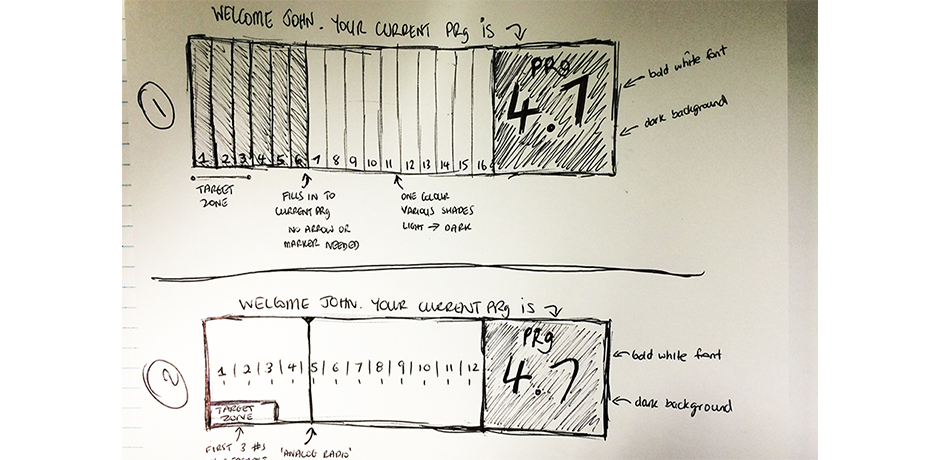 WELCOME JOHN. YOUR CURRENT PRg is
1
PRg
4.7
bold white font
dark background
1 2 3 4 5 6 7 8 9 10 11 12 13 14 15 16
TARGET
ZONE
FILLS IN TO
CURRENT PRg
NO ARROW OR
MARKER NEEDED
ONE COLOUR
VARIOUS SHADES
LIGHT → DARK
WELCOME JOHN. YOUR CURRENT PRg is
2
PRg
4.7
bold white font
dark background
1 | 2 | 3 | 4 | 5 | 6 | 7 | 8 | 9 | 10 | 11 | 12
TARGET
ZONE
FIRST 3 #S
'ANALOG RADIO'